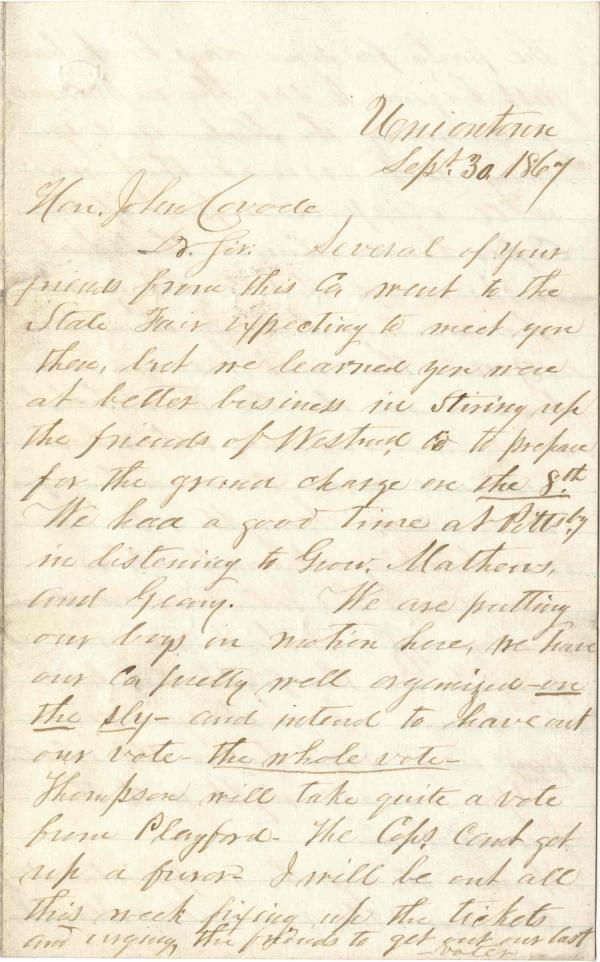 Uniontown
Sept. 30. 1867
Hon. John Covode
Dr. Sir. Several of your
friends from this Co went to the
State Fair expecting to meet you
there, but we learned you were
at better business in Stiring up
the friends of Westmd, Co to prepare
for the grand charge on the 8.th
We had a good time at Pittsbg
in listening to Grow, Mathews,
and Geary. We are putting
our boys in motion here, we have
our Co pretty well organized - on
the sly - and intend to have out
our vote - the whole vote -
Thompson will take quite a vote
from Playford - The Cops. Cant get
up a furor - I will be out all
this week fixing up the tickets
and urging the friends to get out our last
- voter